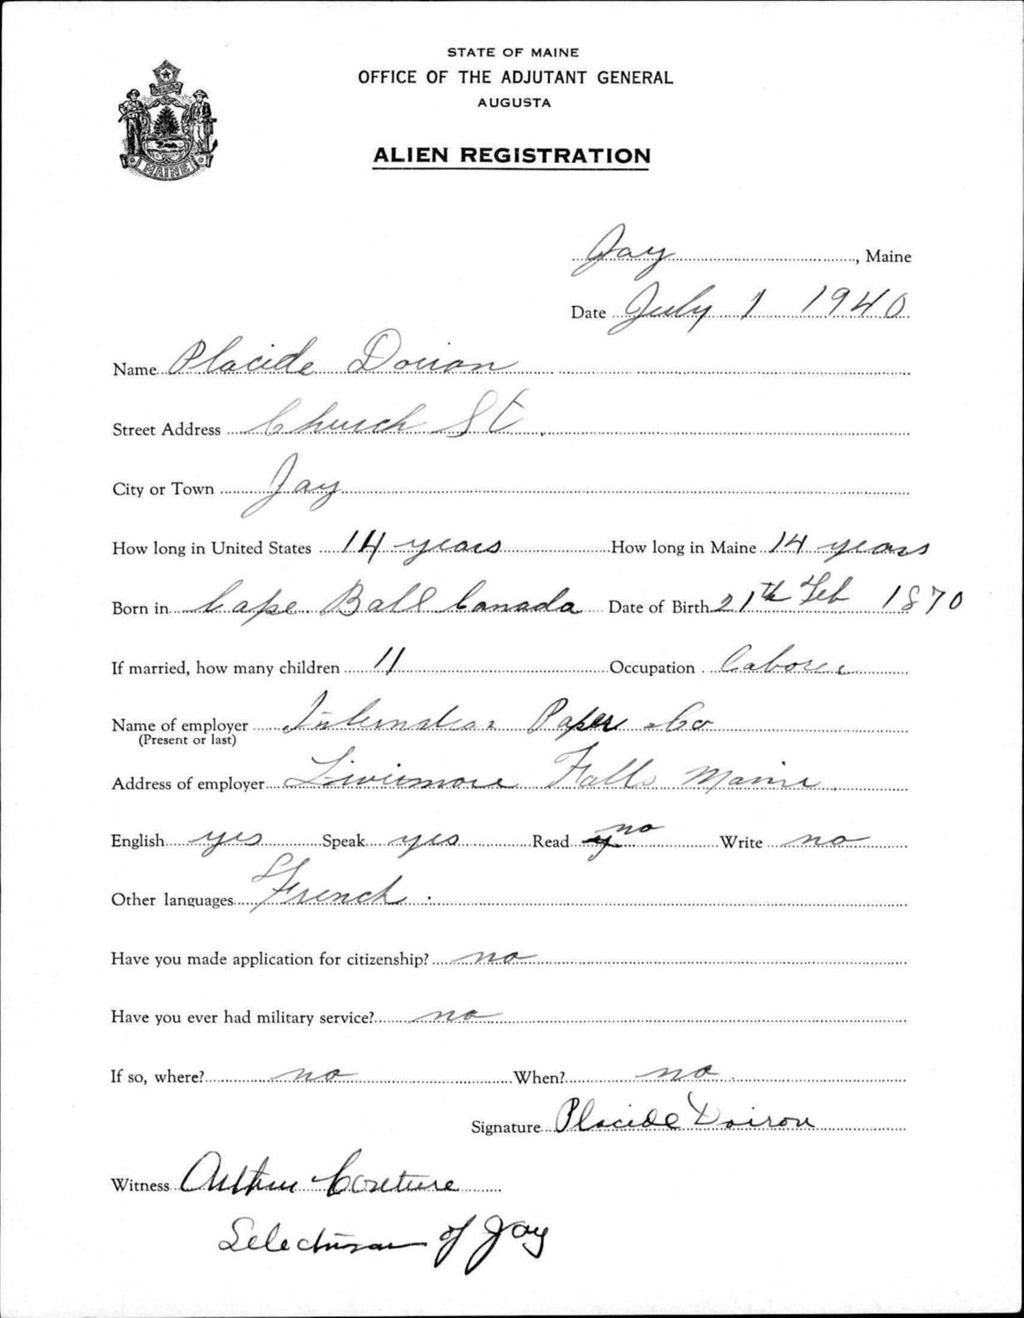 STATE OF MAINE
OFFICE OF THE ADJUTANT GENERAL
AUGUSTA
ALIEN REGISTRATION
MAINE
Jay, Maine
Date July 1 1940
Name Placide Doiron
Street Address Church St.
City or Town Jay
How long in United States 14 years How long in Maine 14 years
Born in Cape Ball Canada Date of Birth 21th Feb 1870
If married, how many children 11 Occupation Laborer
Name of employer Internation Paper Co
(Present or last)
Address of employer Liviermore Falls Maine.
English yes Speak yes Read no Write no
Other languages French.
Have you made application for citizenship? no
Have you ever had military service? no
If so, where? no When? no.
Signature Placide Doiron
Witness Arthur Couture
Selectman of Jay